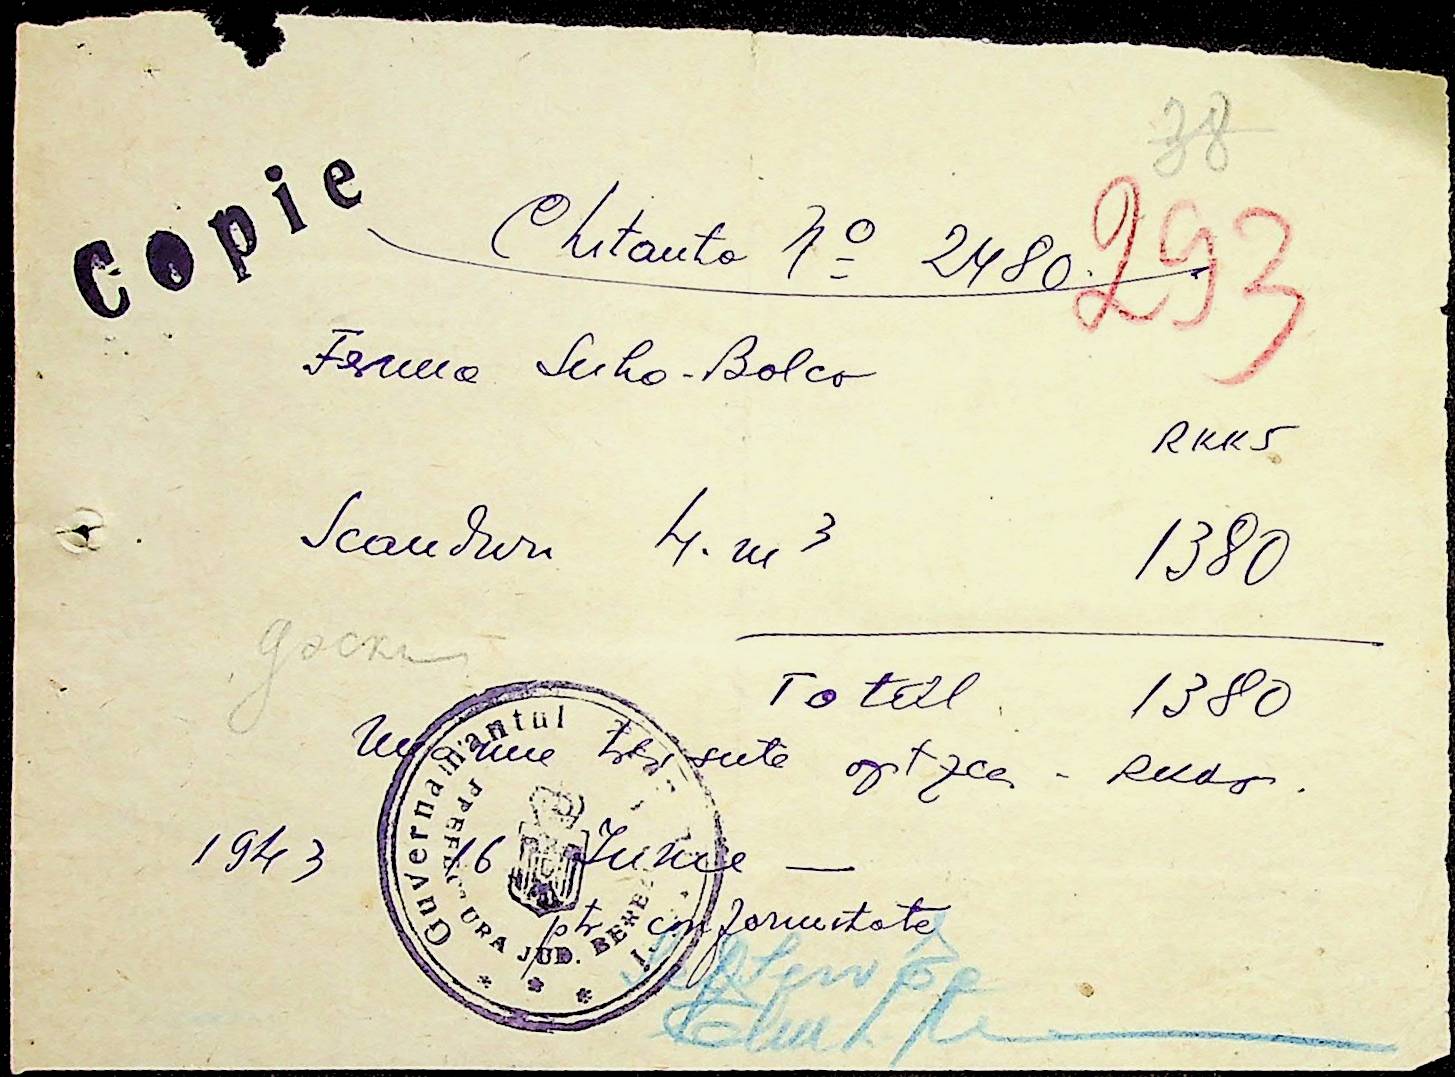 38
Copie
Chitanta No 2480.
293
Ferma Suho-Bolco
RKKS
Scanduri 4.m3 1380
доски
Total 1380
Una mie trei sute optzeci - RKKS.
1943 16 Iunie —
ptr conformitate
Guvernamantul
PREFECTURA JUD. BEREZ